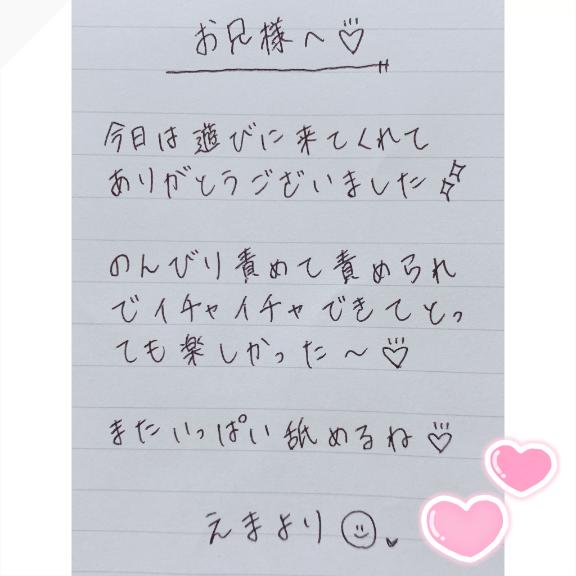 お兄様へ♡
今日は遊びに来てくれて
ありがとうございました
のんびり責めて責められ
でイチャイチャできてとっ
ても楽しかった〜♡
またいっぱい舐めるね♡
えまより